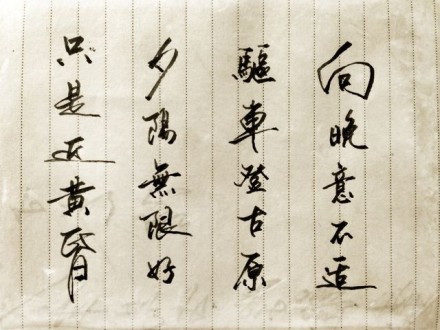 向晚意不适
驅車登古原
夕陽無限好
只是近黄昏